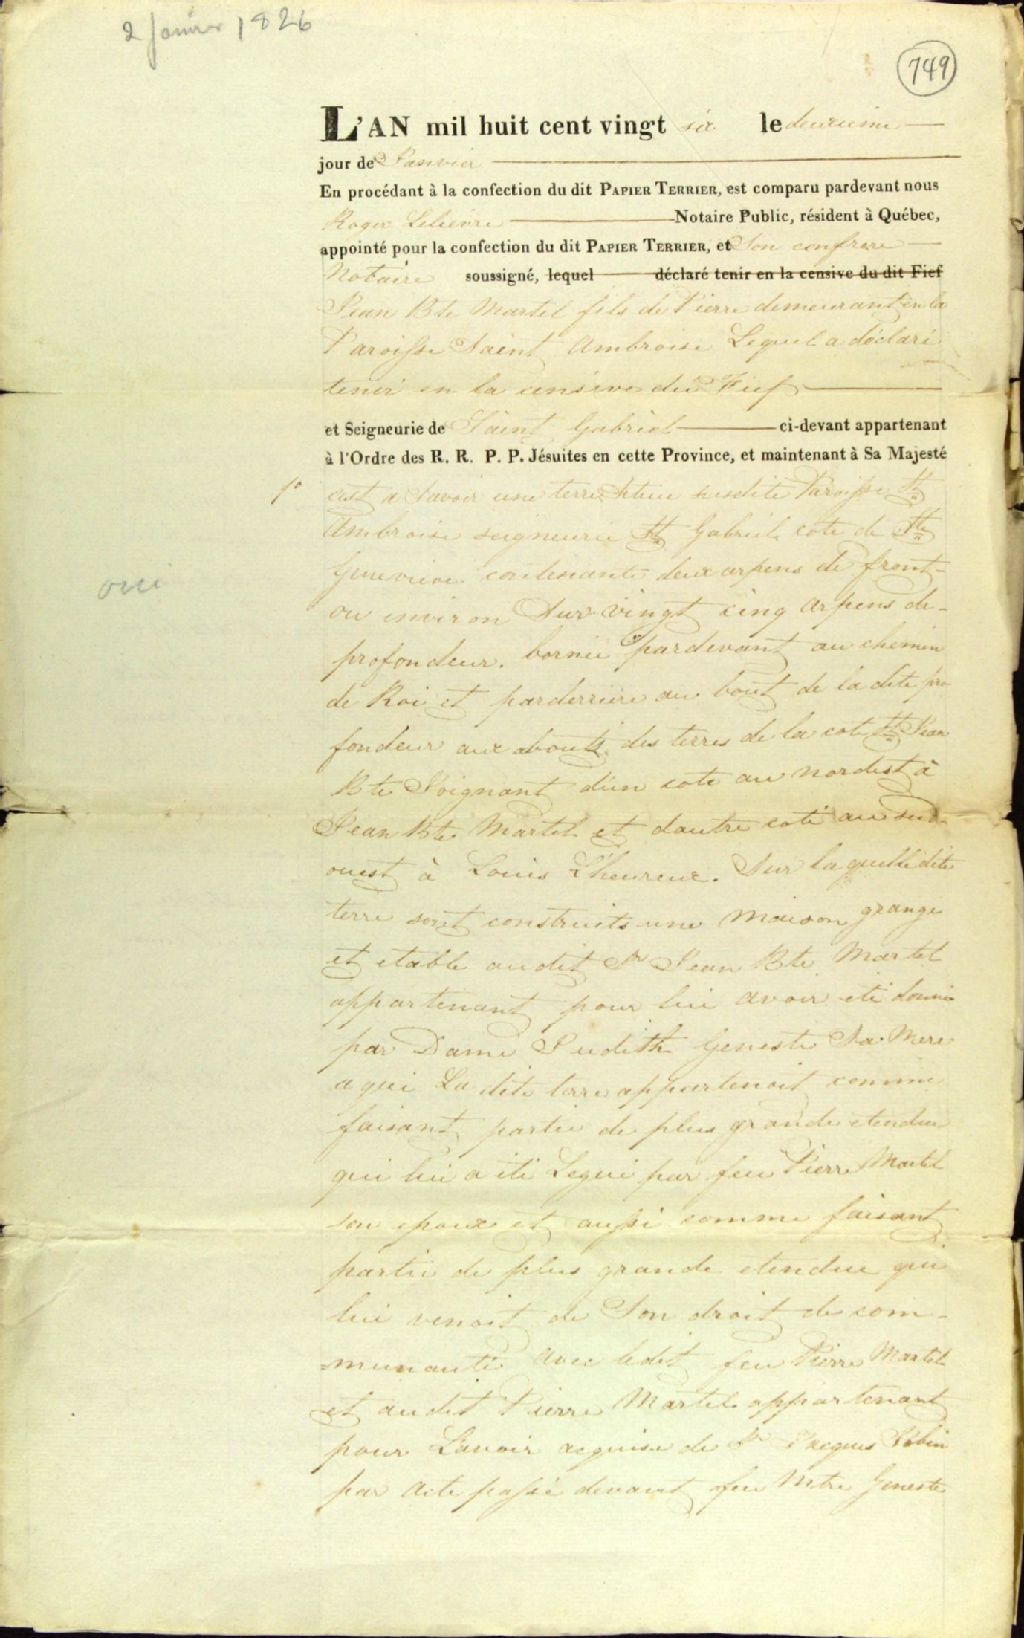 2 Janvier 1826
749
L'AN mil huit cent vingt six le deuxieme
jour de Janvier
En procédant à la confection du dit PAPIER TERRIER, est comparu pardevant nous
Roger Lelievre Notaire Public, résident à Québec,
appointé pour la confection du dit PAPIER TERRIER, et Son confrere
Notaire soussigné, lequel déclaré tenir en la censive du dit Fief
Jean Bte Martel fils de Pierre demeurant en la
Paroisse Saint Ambroise Lequel a déclaré
tenir en la censive du Fief
et Seigneurie de Saint Gabriel ci-devant appartenant
à l'Ordre des R. R. P. P. Jésuites en cette Province, et maintenant à Sa Majesté
1° cest a Savoir une terre Situee susdite Paroisse St
Ambroise seigneurie St Gabriel cote de Ste
oui
Genevieve contenante deux arpens de front
ou environ Sur vingt cinq arpens de
profondeur. bornee pardevant au chemin
de Roi et parderriere au bout de la dite pro
fondeur aux abouts des terres de la cote St Jean
Bte Joignant d'un cote au nordest à
Jean Bte Martel et dautre coté au sud
ouest à Louis L'heureux. Sur laquelle dite
terre sont construits une maison grange
et etable audit Sr Jean Bte Martel
appartenant pour lui avoir eté donnée
par Dame Judith Geneste Sa Mere
a qui La dite terre appartenoit comme
faisant partie de plus grande etendue
qui lui a eté Legué par feu Pierre Martel
son epoux et aussi comme faisant
partie de plus grande etendue qui
lui venoit de Son droit de com-
munauté avec ledit feu Pierre Martel
et audit Pierre Martel appartenant
pour L'avoir acquise de Sr Jacques
par Acte passé devant feu Mtre Geneste